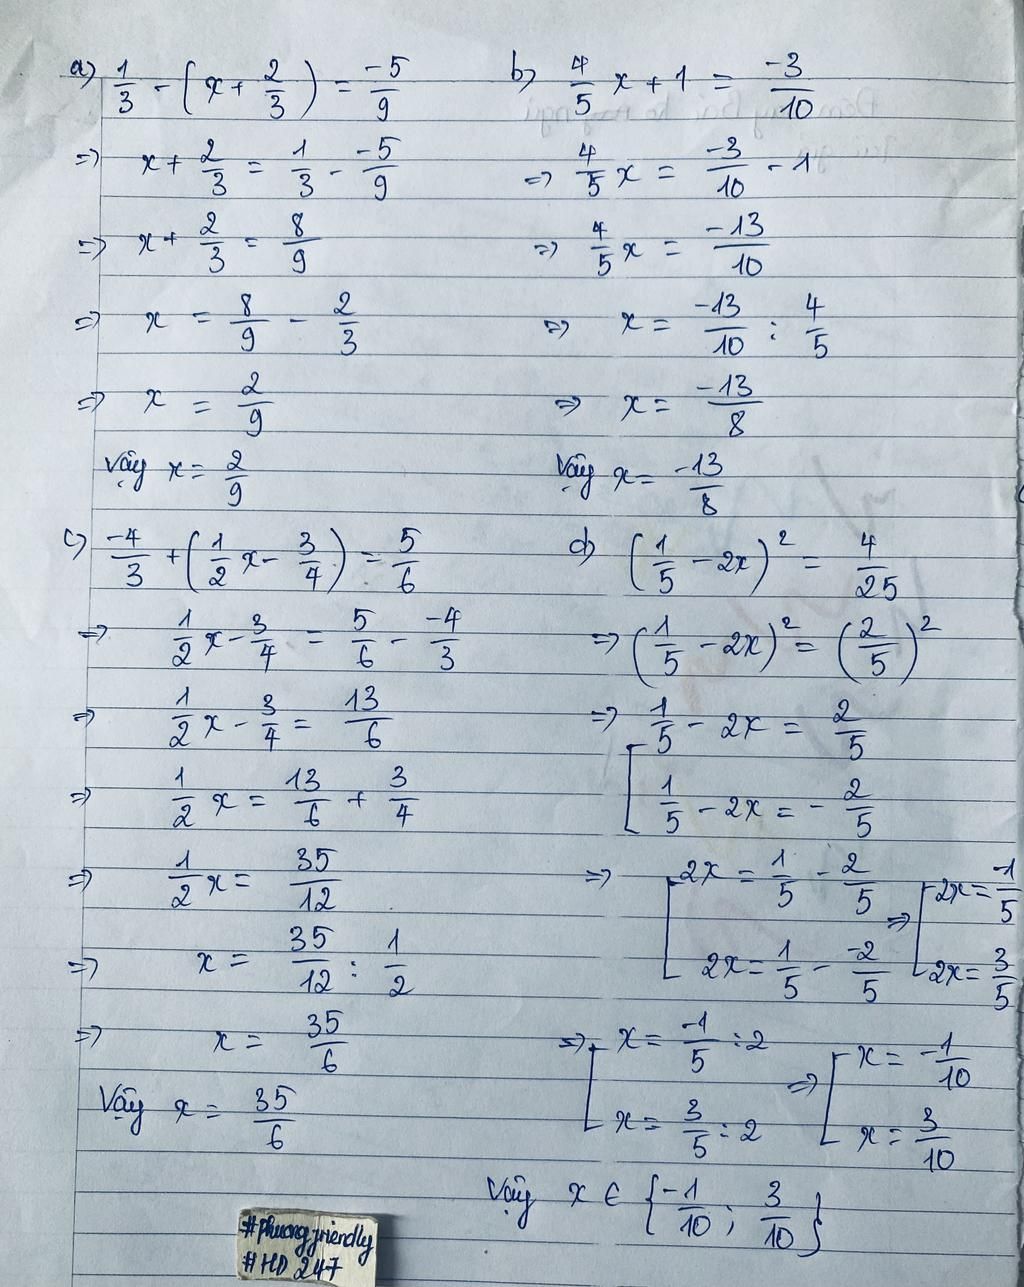 a) 1/3 - (x + 2/3) = -5/9
=> x + 2/3 = 1/3 - -5/9
=> x + 2/3 = 8/9
=> x = 8/9 - 2/3
=> x = 2/9
Vậy x = 2/9
b) 4/5 x + 1 = -3/10
=> 4/5 x = -3/10 - 1
=> 4/5 x = -13/10
=> x = -13/10 : 4/5
=> x = -13/8
Vậy x = -13/8
c) -4/3 + (1/2 x - 3/4) = 5/6
=> 1/2 x - 3/4 = 5/6 - -4/3
=> 1/2 x - 3/4 = 13/6
=> 1/2 x = 13/6 + 3/4
=> 1/2 x = 35/12
=> x = 35/12 : 1/2
=> x = 35/6
Vậy x = 35/6
d) (1/5 - 2x)² = 4/25
=> (1/5 - 2x)² = (2/5)²
=> [ 1/5 - 2x = 2/5
1/5 - 2x = - 2/5
=> [ 2x = 1/5 - 2/5 => [ 2x = -1/5
2x = 1/5 - -2/5 2x = 3/5
=> [ x = -1/5 : 2 => [ x = -1/10
x = 3/5 : 2 x = 3/10
Vậy x ∈ {-1/10 ; 3/10}
#phuongfriendly
#HD 247